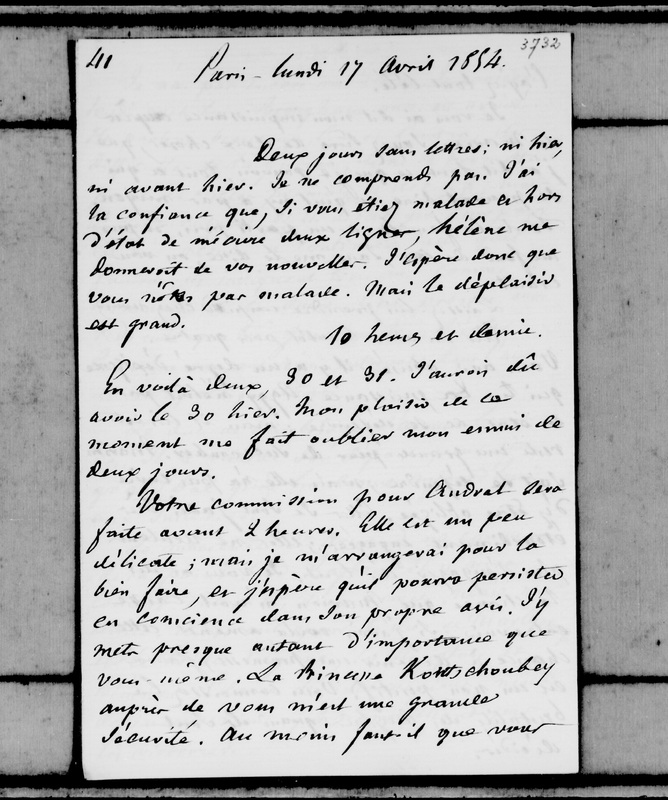 41
3732
Paris - lundi 17 avril 1854.
Deux jours sans lettres; ni hier,
ni avant hier. Je ne comprends pas. J'ai
la confiance que, si vous étiez malade et hors
d'état de m'écrire deux lignes, hélène me
donneroit de vos nouvelles. J'espère donc que
vous n'êtes pas malade. Mais le déplaisir
est grand.
10 heures et demie.
En voilà deux, 30 et 31. J'aurois dû
avoir le 30 hier. Mon plaisir de ce
moment me fait oublier mon ennui de
deux jours.
Votre commission pour Andral sera
faite avant 2 heures. Elle est un peu
délicate; mais je m'arrangerai pour la
bien faire, et j'espère qu'il pourra persister
en conscience dans son propre avis. J'y
mets presque autant d'importance que
vous-même. La Princesse Kotschoubey
auprès de vous m'est une grande
sécurité. Au moins faut-il que vous